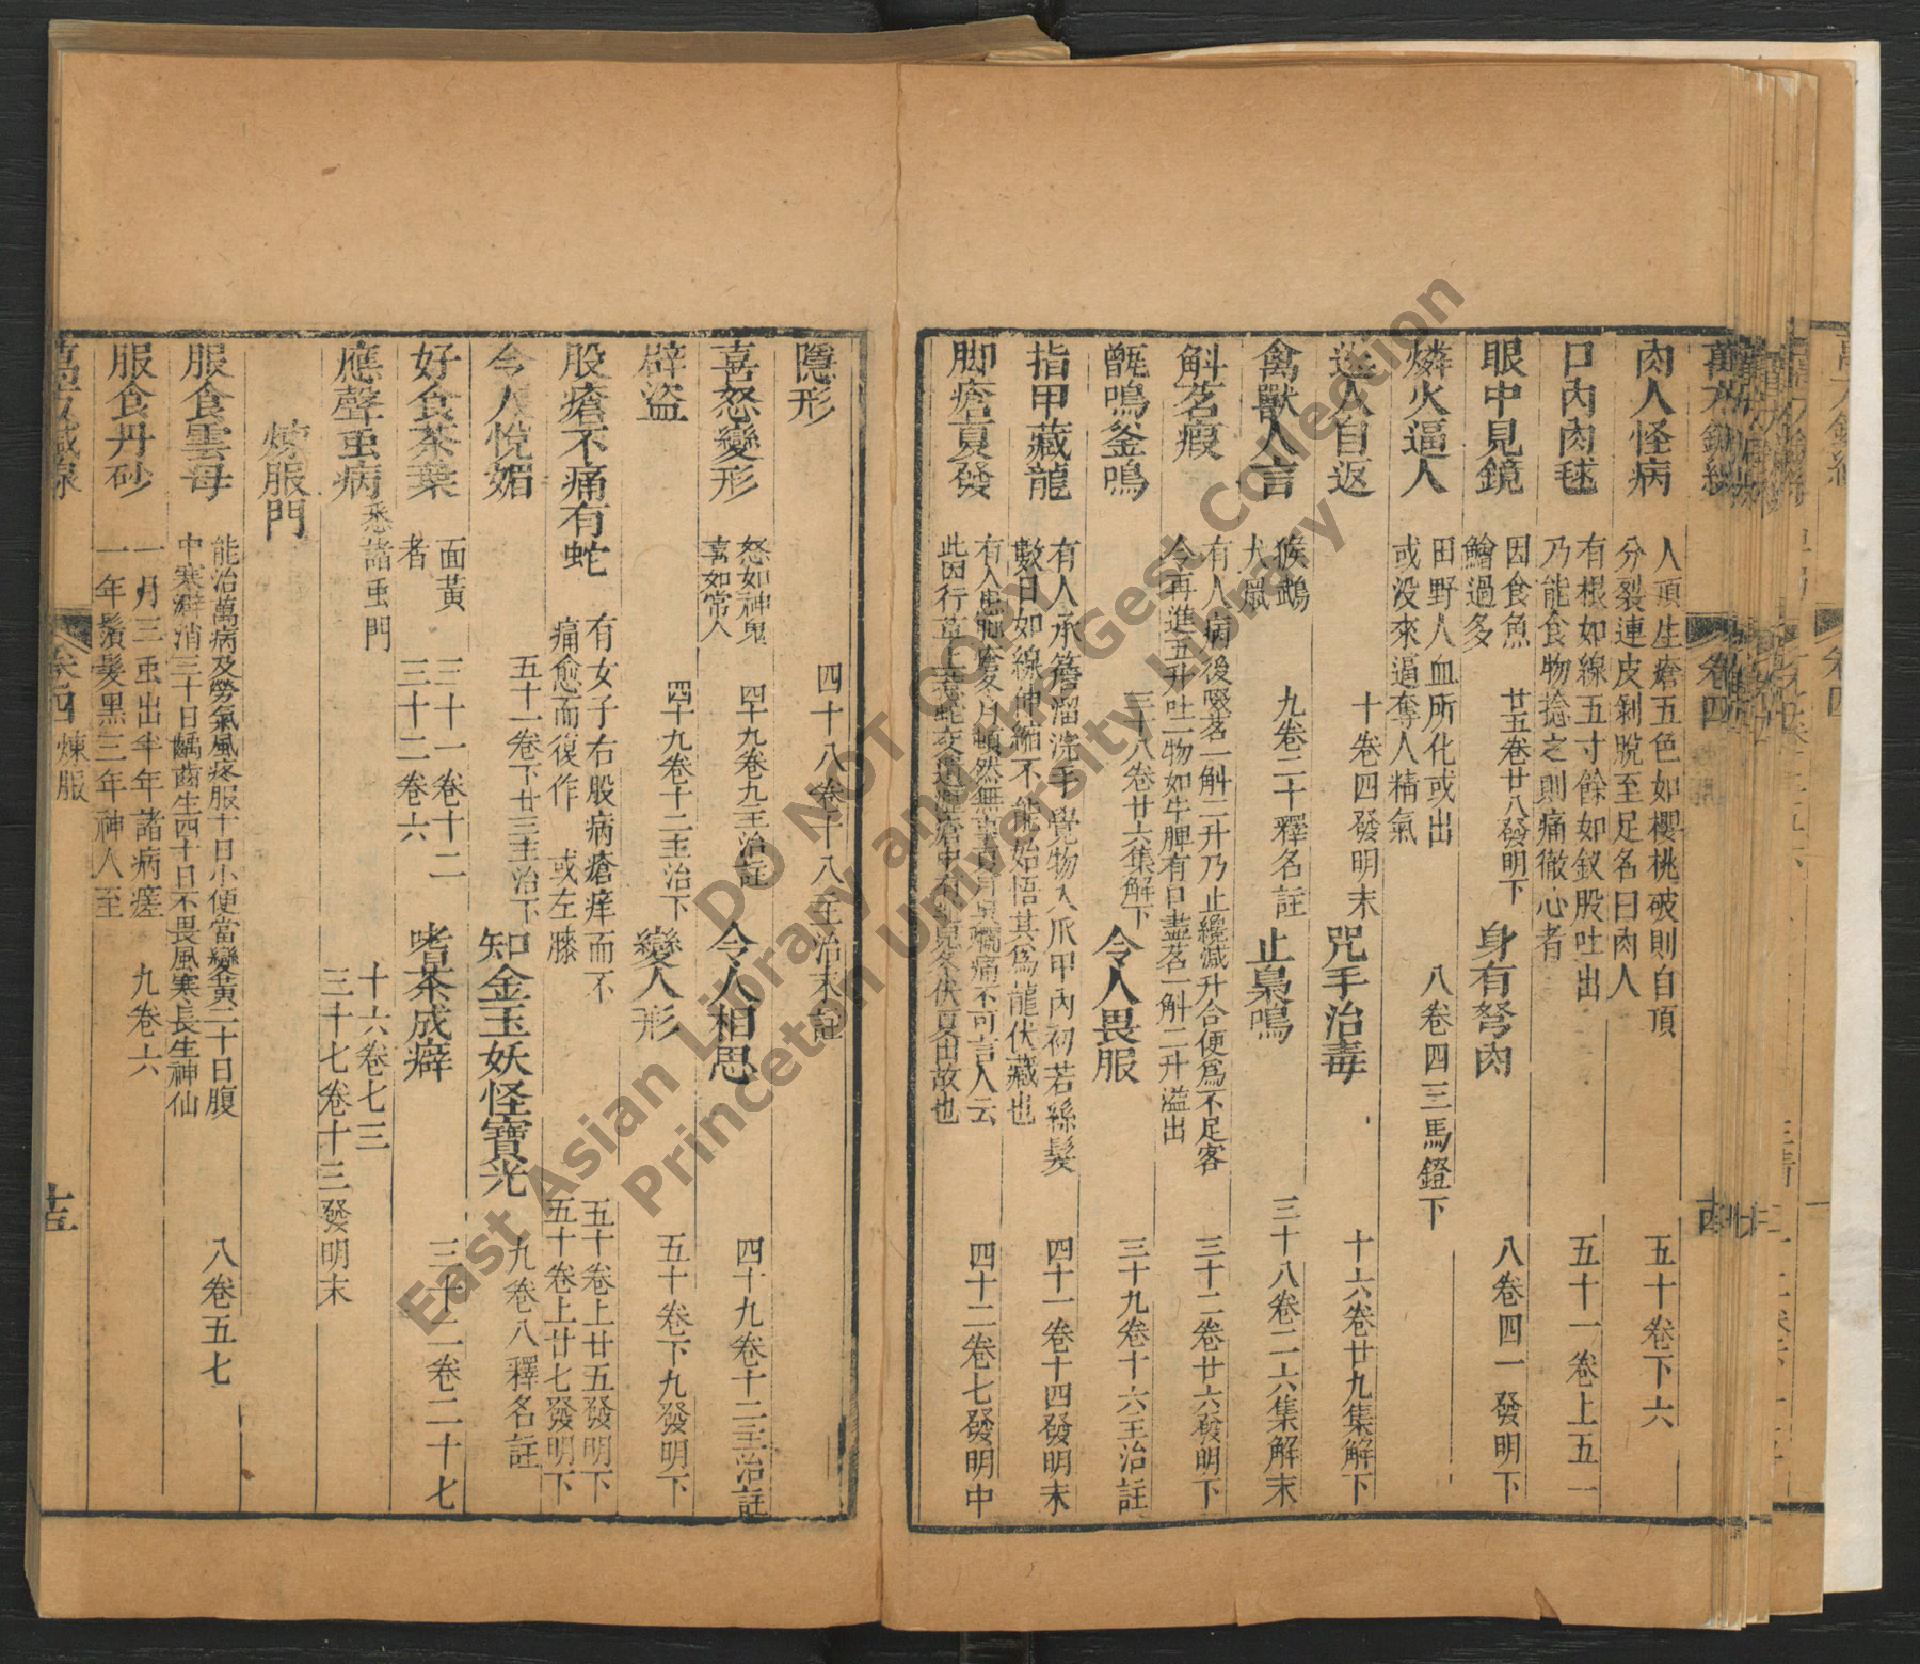 肉人怪病 人頂生瘡五色如櫻桃破則自頂分裂連皮剝脫至足名曰肉人 五十卷下六
口內肉毬 有根如線五寸餘如釵股吐出乃能食物捻之則痛徹心者 五十一卷上五一
眼中見鏡 因食魚鱠過多 廿五卷廿八發明下 身有弩肉 八卷四一發明下
燐火逼人 田野人血所化或出或没來逼奪人精氣 八卷四三馬鐙下
迷人自返 十卷四發明末 咒手治毒 十六卷廿九集解下
禽獸人言 猴鵡犬鼠 九卷二十釋名註 止梟鳴 三十八卷二六集解末
斛茗瘕 有人病後啜茗一斛二升乃止纔減升合便爲不足客令再進五升吐一物如牛脾有口盡茗一斛二升溢出 三十二卷廿六發明下
甑鳴釜鳴 三十八卷廿六集解下 令人畏服 三十九卷十六主治註
指甲藏龍 有人承簷溜浣手覺物入爪甲內初若絲髮數日如線伸縮不能始悟其爲龍伏藏也 四十一卷十四發明末
脚瘡夏發 四十二卷七發明中
萬方鍼線 卷四 十四
隱形 四十八卷十八主治末註
喜怒變形 怒如神鬼喜如常人 四十九卷九主治註 令人相思 四十九卷十二主治註
辟盜 四十九卷十二主治下 變人形 五十卷下九發明下
股瘡不痛有蛇 有女子右股病瘡痒而不痛愈而復作 或左膝 五十卷上廿五發明下五十卷上廿七發明下
令人悅媚 五十一卷下廿三主治下 知金玉妖怪寶光 九卷八釋名註
好食茶葉 面黃者 三十一卷十二三十二卷六 嗜茶成癖 三十二卷二十七
應聲虫病 悉諸虫門 十六卷七三三十七卷十三發明末
煉服門
服食雲母 能治萬病及勞氣風疼服十日小便當變黃二十日腹中寒癖消三十日齲齒生四十日不畏風寒長生神仙 八卷五七
服食丹砂 一月三虫出半年諸病瘥一年鬚髮黑三年神人至 九卷六
萬方鍼線 卷四 煉服 十五
East Asian Library and the Gest Collection
DO NOT COPY
Princeton University Library